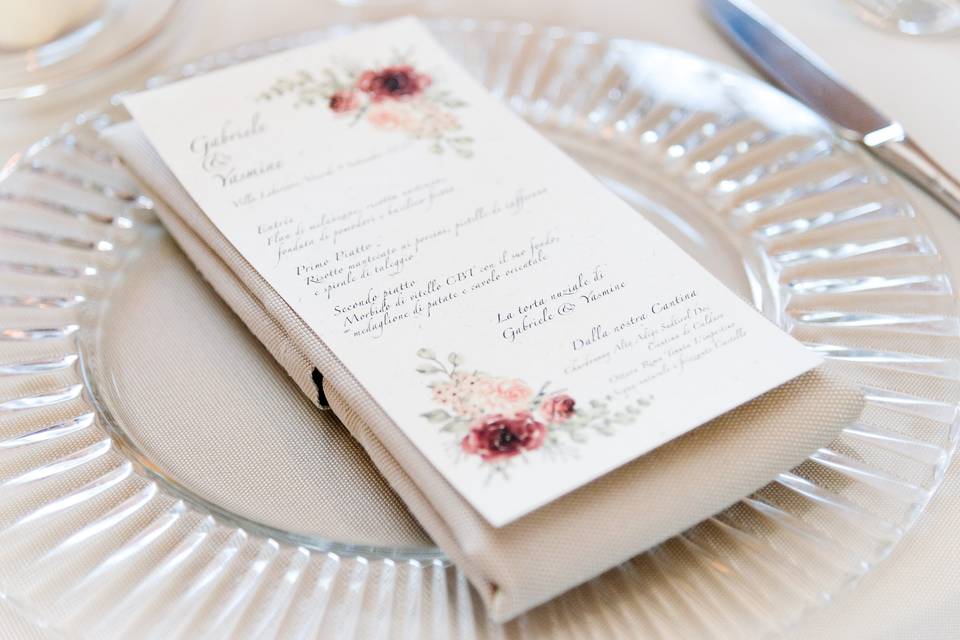 Gabriele
&
Yasmine
Villa
Entrée
Flan di melanzane, ricotta
fonduta di pomodori e basilico
Primo Piatto
Risotto mantecato ai porcini, pistilli di zafferano
e spirale di taleggio
Secondo piatto
Morbido di vitello CBT con il suo fondo,
medaglione di patate e carote orientale
La torta nuziale di
Gabriele & Yasmine
Dalla nostra Cantina
Chardonnay Alto Adige Sudtirol Doc
Cantina di Caldaro
Acqua naturale e frizzante